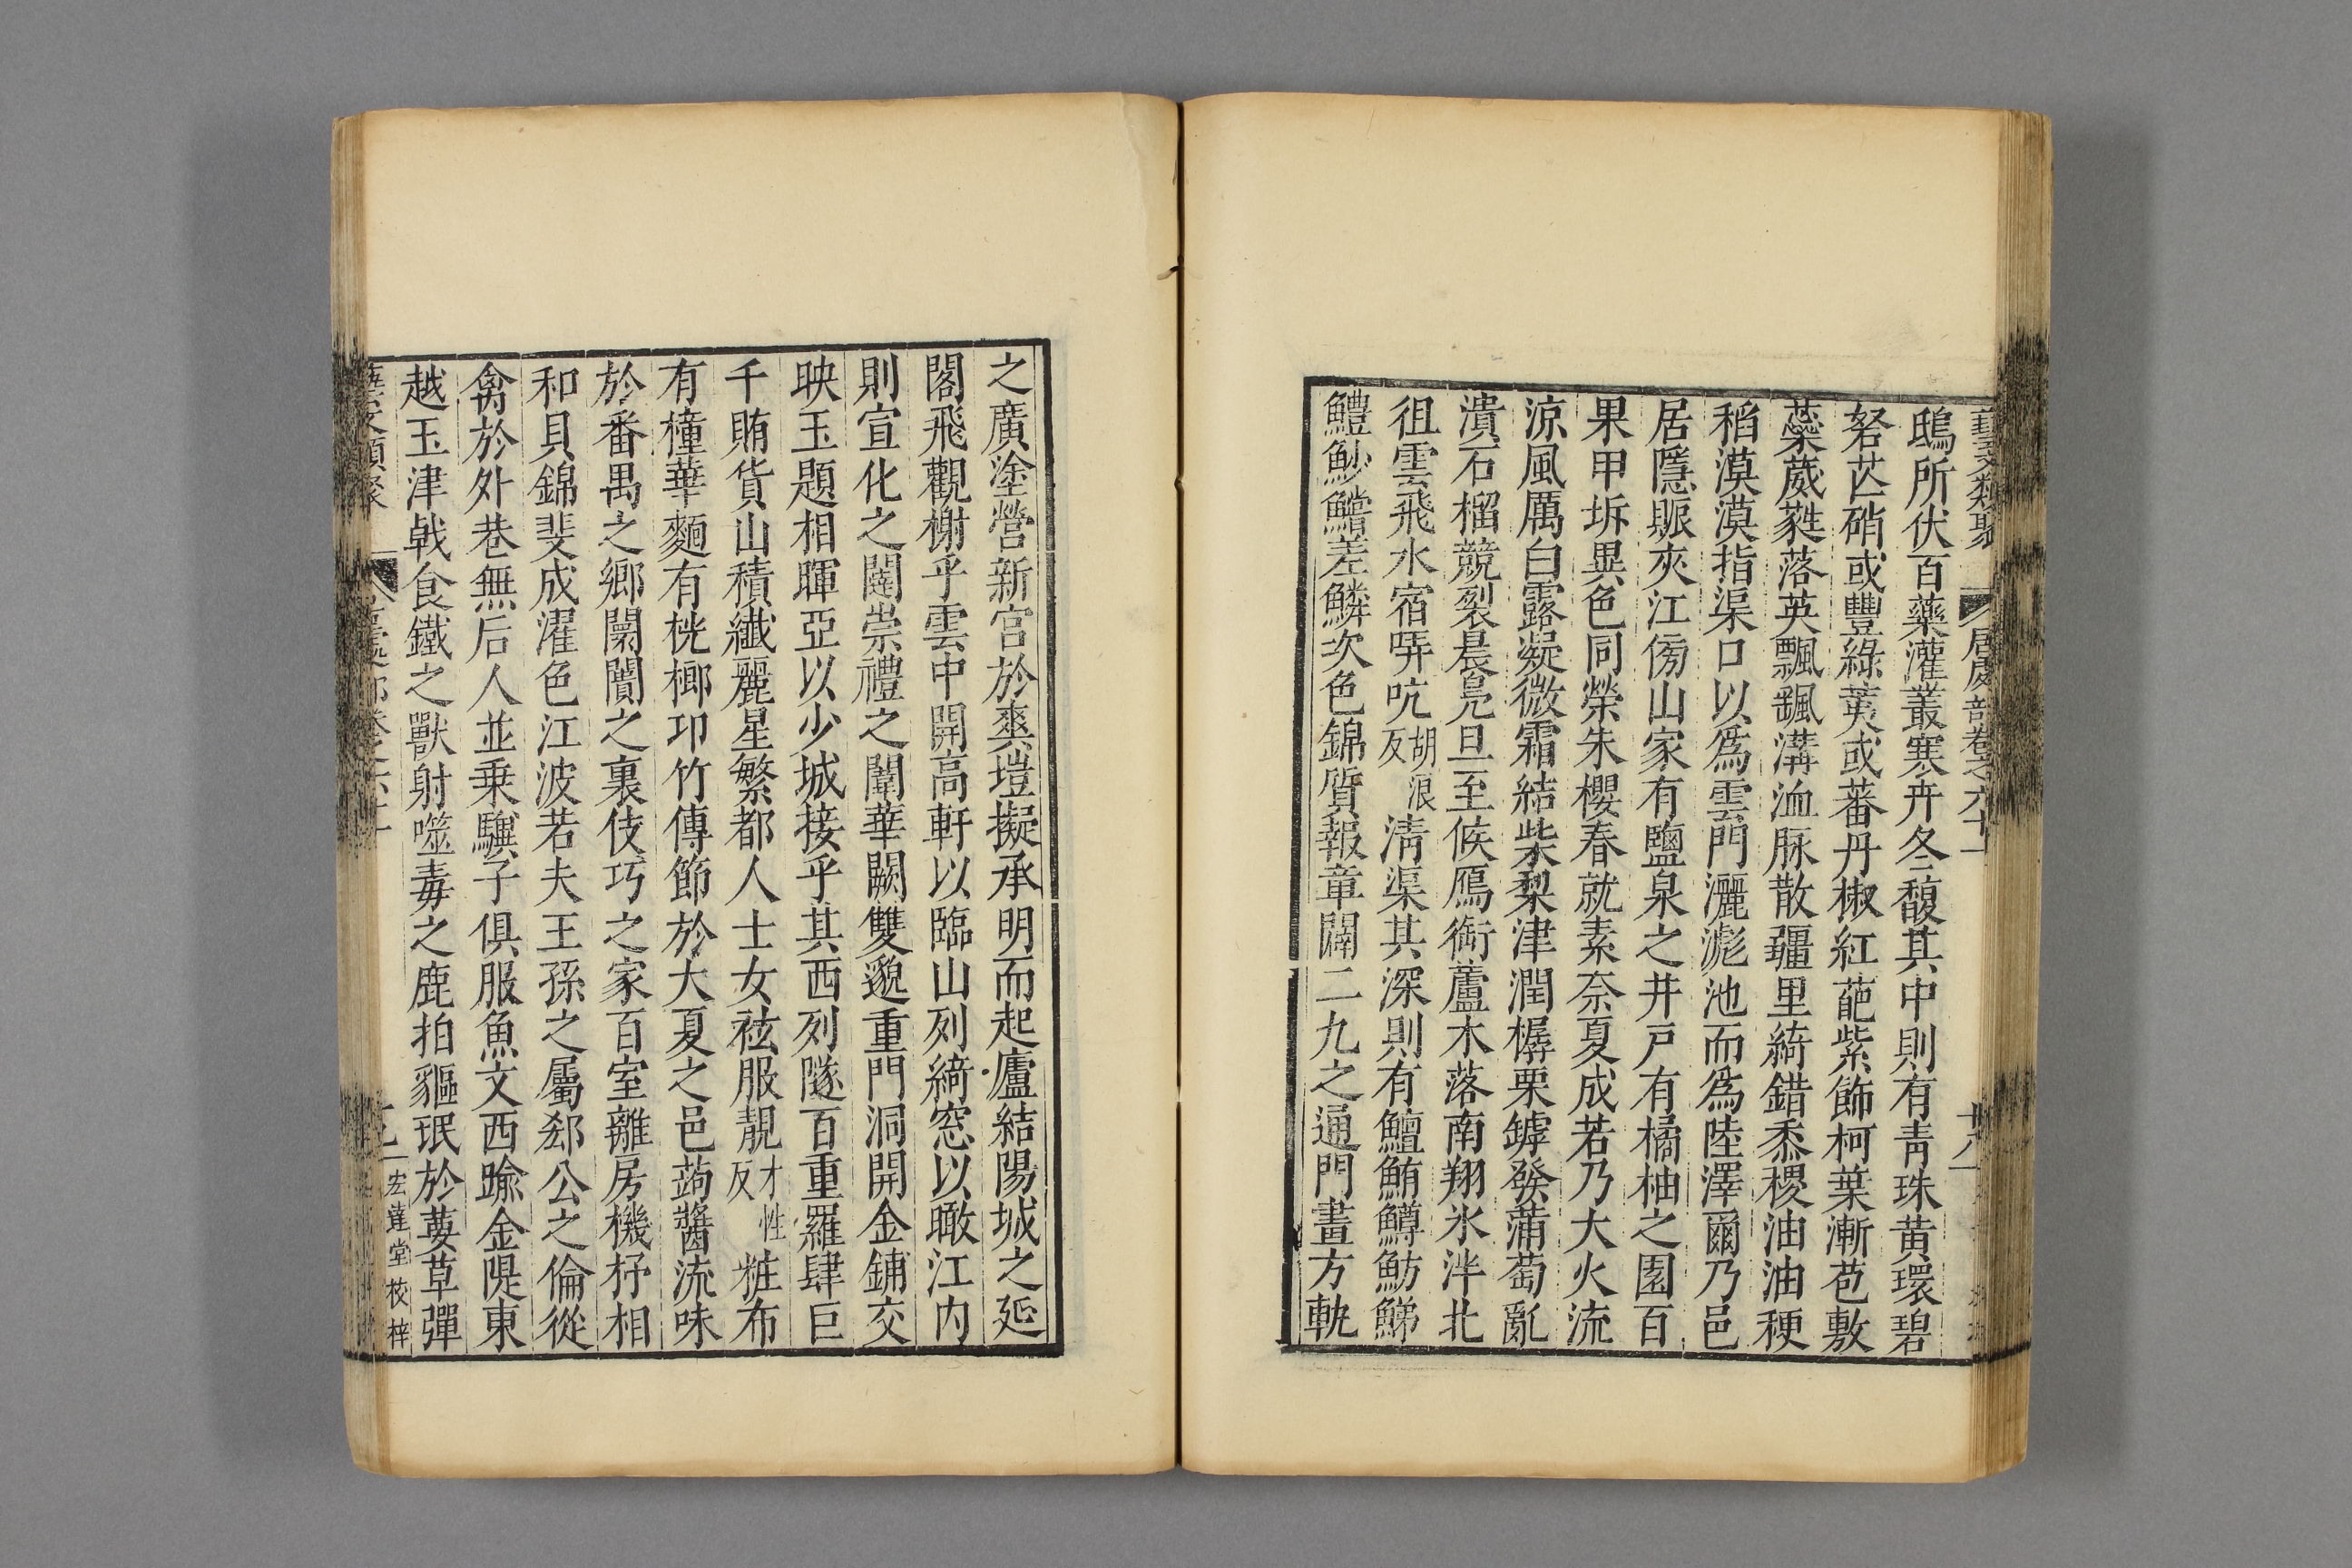 藝文類聚 居處部卷之六十一 十八
鴟所伏百藥灌叢寒卉冬馥其中則有靑珠黃環碧
砮芒硝或豐綠荑或蕃丹椒紅葩紫飾柯葉漸苞敷
蘂葳蕤落英飄颻溝洫脉散疆里綺錯黍稷油油稉
稻漠漠指渠口以爲雲門灑滮池而爲陸澤爾乃邑
居隱賑夾江傍山家有鹽泉之井戸有橘柚之園百
果甲坼異色同榮朱櫻春就素奈夏成若乃大火流
涼風厲白露凝微霜結柴梨津潤樼栗罅發蒲萄亂
潰石榴競裂晨鳧旦至候鴈銜蘆木落南翔氷泮北
徂雲飛水宿哢吭胡浪反淸渠其深則有鱣鮪鱒魴鮷
鱧魦鱨差鱗次色錦質報章闢二九之通門畫方軌
之廣塗營新宮於爽塏擬承明而起廬結陽城之延
閣飛觀榭乎雲中開高軒以臨山列綺窓以瞰江内
則宣化之闥崇禮之闈華闕雙邈重門洞開金鋪交
映玉題相暉亞以少城接乎其西列隧百重羅肆巨
千賄貨山積纎麗星繁都人士女袨服靚才性反粧布
有橦華麵有桄榔卭竹傳節於大夏之邑蒟醬流味
於番禺之郷闤闠之裏伎巧之家百室離房機杼相
和貝錦斐成濯色江波若夫王孫之屬郄公之倫從
禽於外巷無居人並乗驥子俱服魚文西踰金隄東
越玉津戟食鐵之獸射噬毒之鹿拍貙氓於葽草彈
宏達堂校梓